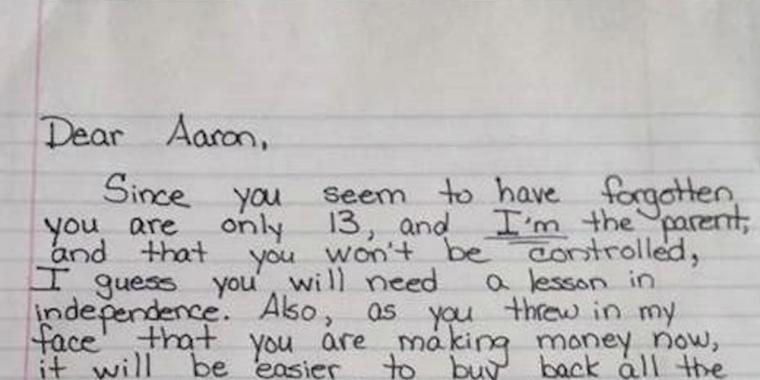 Dear Aaron,
Since you seem to have forgotten
you are only 13, and I'm the parent,
and that you won't be controlled,
I guess you will need a lesson in
independence. Also, as you threw in my
face that you are making money now,
it will be easier to buy back all the